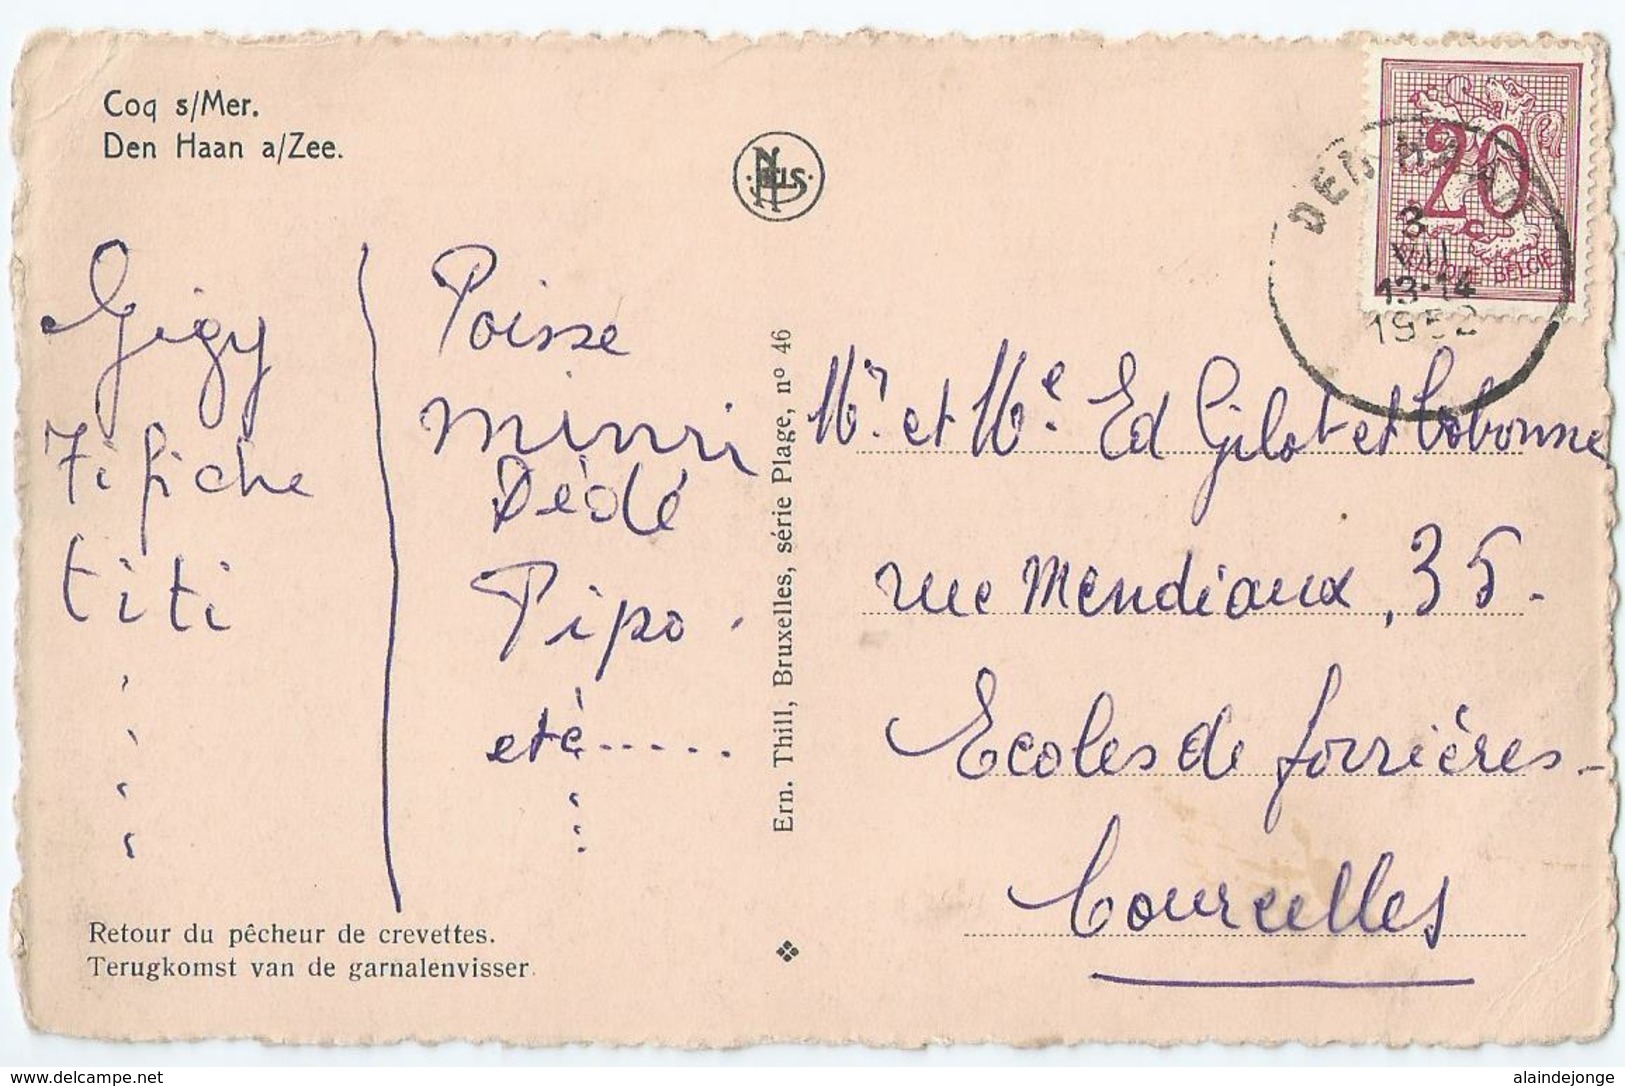 Coq s/Mer.
Den Haan a/Zee.
NELS
20
c
BELGIQUE BELGIË
DEN HAAN
3
VIII
13-14
1952
Gigy
Fifiche
titi
Poisse
minri
Dédé
Pipo.
etc.....
Ern. Thill, Bruxelles, série Plage, nº 46
Mr. et Me. Ed Gilot et
rue Mendiaux, 35.
Ecoles de forrières-
Courcelles
Retour du pêcheur de crevettes.
Terugkomst van de garnalenvisser.
www.delcampe.net
alaindejonge